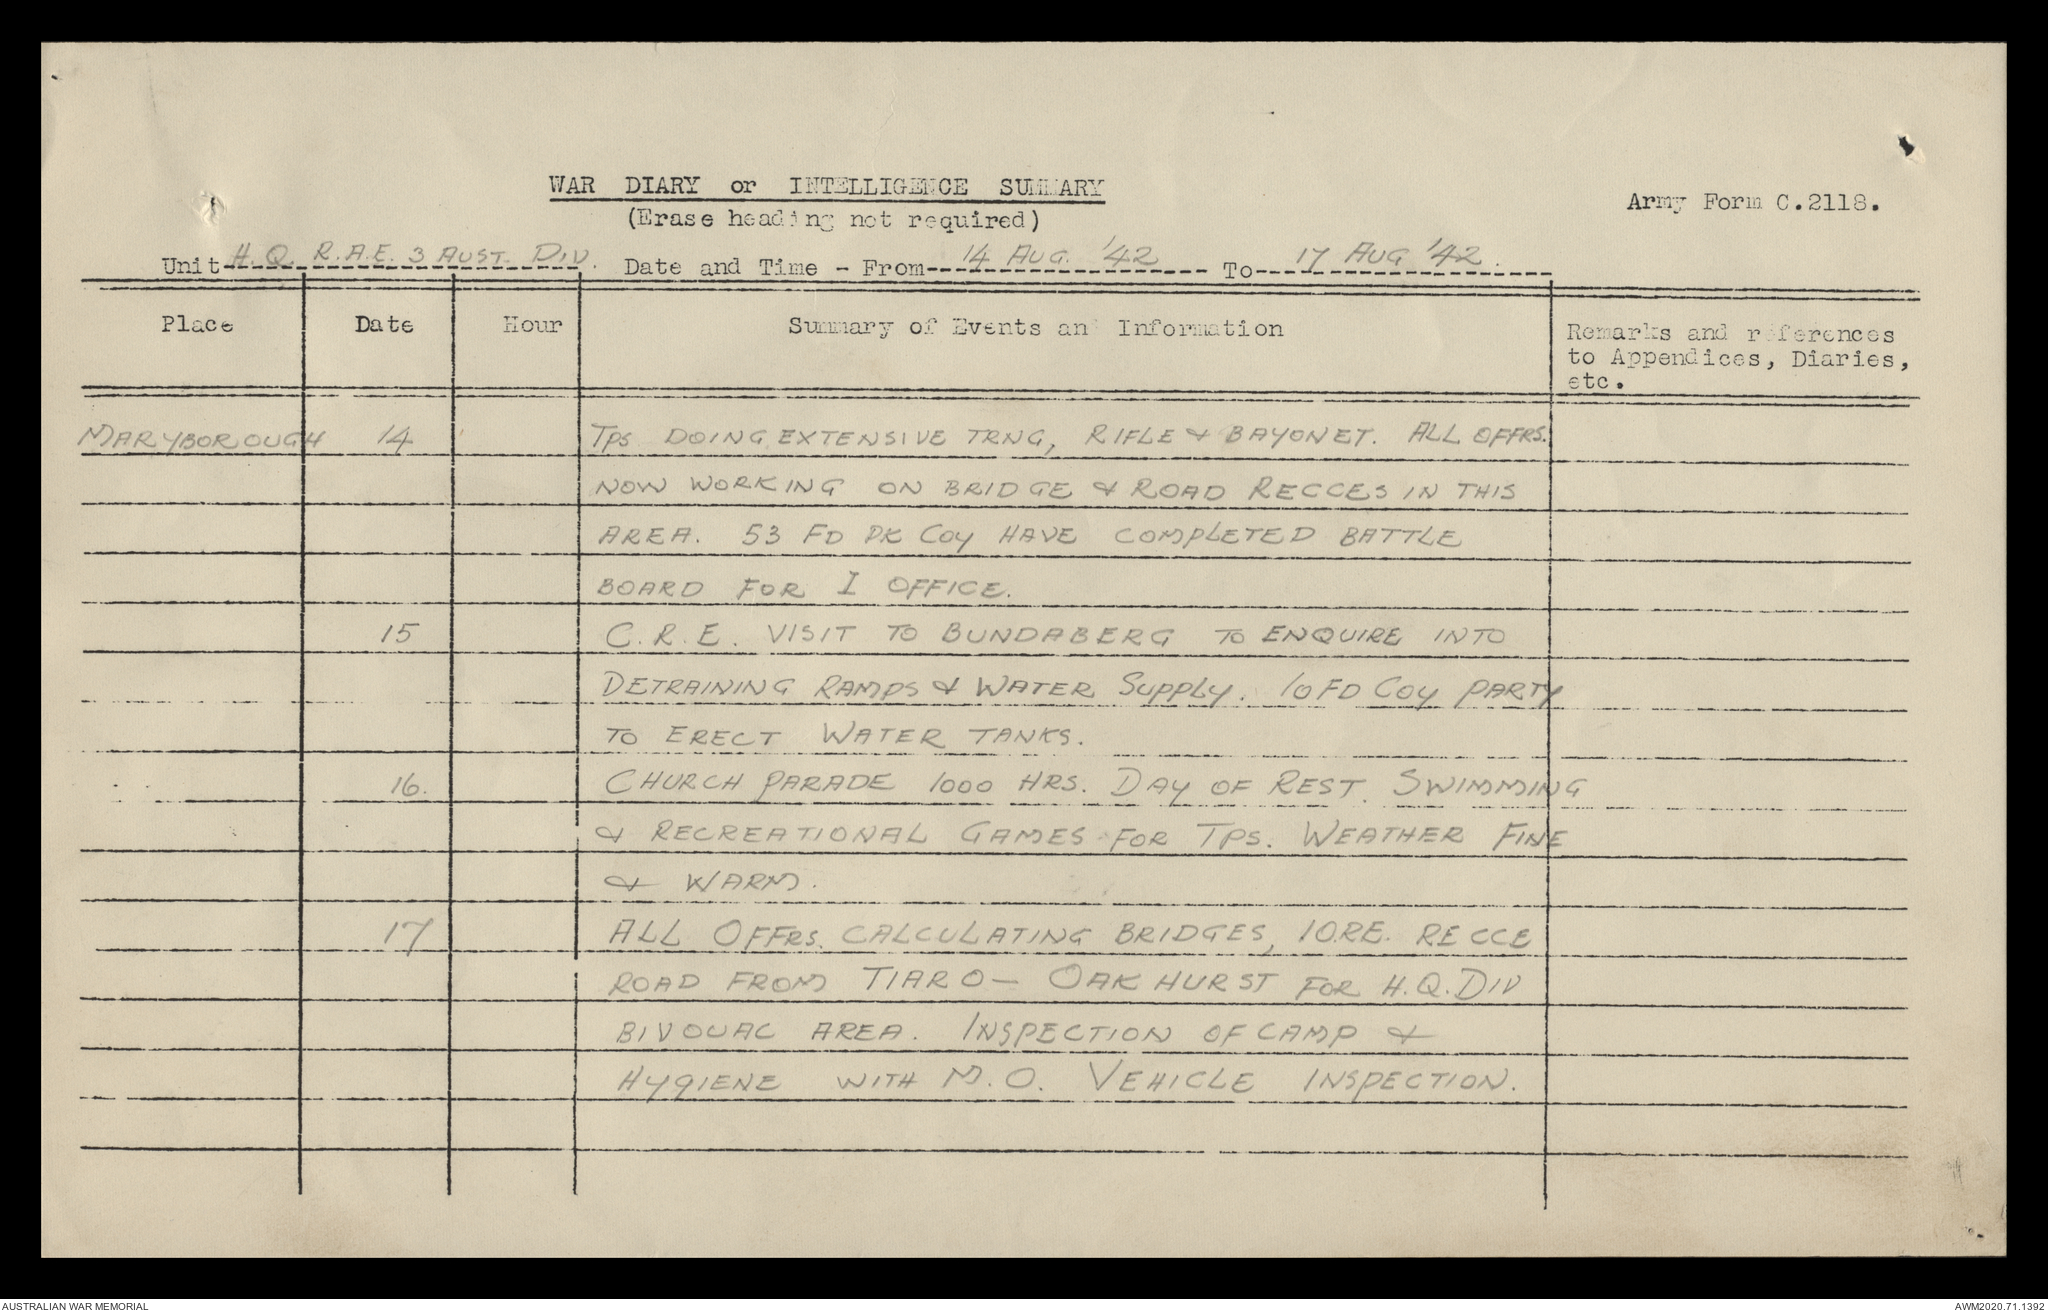 WAR DIARY or INTELLIGENCE SUMMARY
(Erase heading not required)
Army Form C.2118.
Unit H.Q. R.A.E. 3 AUST. DIV. Date and Time - From 14 AUG. '42 To 17 AUG '42.
Place Date Hour Summary of Events and Information Remarks and references
to Appendices, Diaries,
etc.
MARYBOROUGH 14 TPS DOING EXTENSIVE TRNG, RIFLE & BAYONET. ALL OFFRS.
NOW WORKING ON BRIDGE & ROAD RECCES IN THIS
AREA. 53 FD PK COY HAVE COMPLETED BATTLE
BOARD FOR I OFFICE.
15 C.R.E. VISIT TO BUNDABERG TO ENQUIRE INTO
DETRAINING RAMPS & WATER SUPPLY. 10 FD COY PARTY
TO ERECT WATER TANKS.
16. CHURCH PARADE 1000 HRS. DAY OF REST. SWIMMING
& RECREATIONAL GAMES FOR TPS. WEATHER FINE
& WARM.
17 ALL OFFRS. CALCULATING BRIDGES, IO.RE. RECCE
ROAD FROM TIARO - OAKHURST FOR H.Q. DIV
BIVOUAC AREA. INSPECTION OF CAMP &
HYGIENE WITH M.O. VEHICLE INSPECTION.
AUSTRALIAN WAR MEMORIAL
AWM2020.71.1392